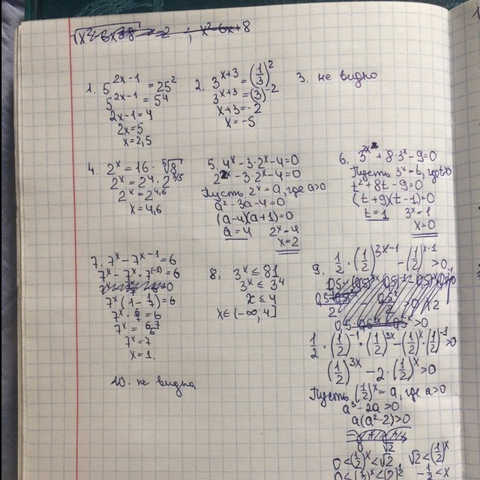 1. 5^{2x-1} = 25^2
5^{2x-1} = 5^4
2x-1=4
2x=5
x=2,5
2. 3^{x+3} = (1/3)^2
3^{x+3} = (3)^{-2}
x+3=-2
x=-5
3. не видно
4. 2^x = 16 · ⁵√8
2^x = 2^4 · 2^{3/5}
2^x = 2^{4,6}
x=4,6
5. 4^x - 3·2^x - 4=0
2^{2x} - 3·2^x - 4=0
Пусть 2^x - a, где a>0
a² - 3a - 4=0
(a-4)(a+1)=0
a=4 2^x - 4
x=2
6. 3^{2x} + 8·3^x - 9=0
Пусть 3^x - t, где t>0
t² + 8t - 9=0
(t+9)(t-1)=0
t=1 3^x - 1
x=0
7. 7^x - 7^{x-1} = 6
7^x - 7^x · 7^{(-1)} = 6
7^x (1 - 1/7) = 6
7^x · 6/7 = 6
7^x = 6·7/6
7^x = 7
x=1
8. 3^x ≤ 81
3^x ≤ 3^4
x ≤ 4
x∈(-∞, 4]
9. 1/2 · (1/2)^{3x-1} - (1/2)^{x-1} >0
1/2 · (1/2)^{-1} · (1/2)^{3x} - (1/2)^x · (1/2)^{-1} >0
(1/2)^{3x} - 2 · (1/2)^x >0
Пусть (1/2)^x = a, где a>0
a³ - 2a >0
a(a²-2)>0
0<(1/2)^x<√2 √2<(1/2)^x
-1/2 < x
10. не видно